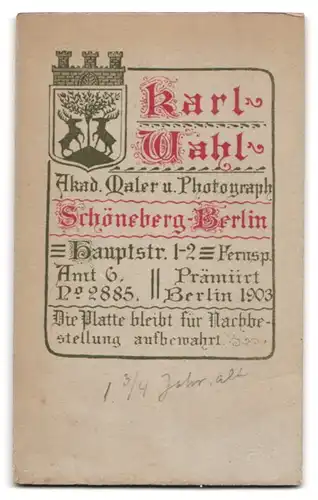 Karl
Wahl
Akad. Maler u. Photograph
Schöneberg-Berlin
Hauptstr. 1-2 Fernsp.
Amt 6. Prämiirt
No 2885. Berlin 1903
Die Platte bleibt für Nachbe-
stellung aufbewahrt
1 3/4 Jahr. alt